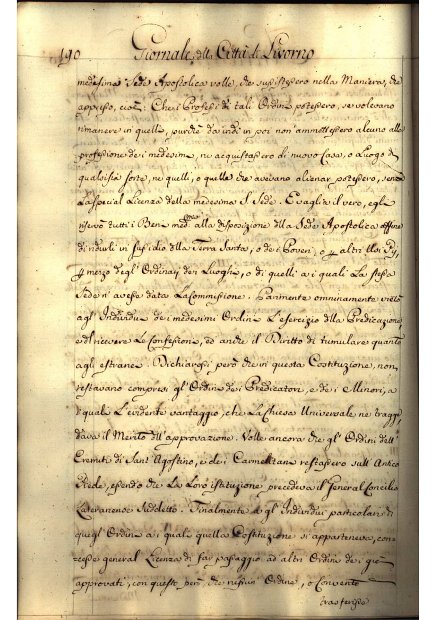 190 Giornale della Città di Livorno
medesima Sede Apostolica volle, che sussistessero nella Maniera, che
appresso, cioè: Che i Professi di tali Ordini potessero, se volevano
rimanere in quelle, purchè da indi in poi non ammettessero alcuno alla
professione de i medesimi, ne acquistassero di nuovo Casa, o Luogo di
qualsisia sorte, ne quelli, o quelle che avevano alienar potessero, senza
La special Licenza della medesima S. Sede. E vaglia il vero, egli
riservò tutti i Beni med.mi alla disposizione della Sede Apostolica affine
di ridurli in sussidio della Terra Santa, o de i Poveri, o altri
mezzo degl' Ordinarj dei Luoghi, o di quelli a i quali La stessa
Sede n' avesse data La Commissione. Parimente onninamente vietò
agl' Individui de i medesimi Ordini L'esercizio della Predicazione
ed il ricevere Le Confessioni, ed anche il Diritto di tumulare quanto
agli estranei. Dichiarossi però che in questa Costituzione, non
restavano compresi gl' Ordini de i Predicatori, e de i Minori, a
i quali L'evidente vantaggio, che La Chiesa Universale ne traggi
dava il Merito dell' approvazione. Volle ancora che gl' Ordini dell'
Eremiti di Sant' Agostino, e de i Carmelitani restassero sull' Antico
Piede, essendo che La Loro istituzione precedeva il General Concilio
Lateranense suddetto. Finalmente a gl' Individui particolari di
quegl' Ordini a i quali questa Costituzione si apparteneva, con-
cesse general Licenza di far passaggio ad altri Ordini de i già
approvati, con questo però, che nessun' Ordine, o Convento
trasferisse